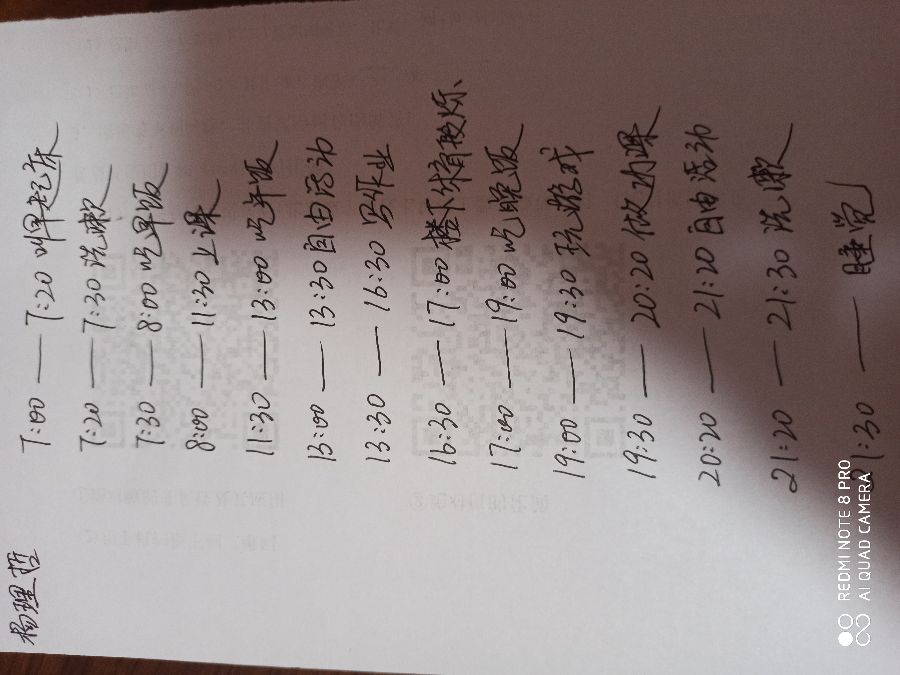 杨理哲
7:00 — 7:20 早起床
7:20 — 7:30 洗漱
7:30 — 8:00 吃早饭
8:00 — 11:30 上课
11:30 — 13:00 吃午饭
13:00 — 13:30 自由活动
13:30 — 16:30 写作业
16:30 — 17:00 楼下体育锻炼、
17:00 — 19:00 吃晚饭
19:00 — 19:30 玩游戏
19:30 — 20:20 做网课
20:20 — 21:20 自由活动
21:20 — 21:30 洗漱
21:30 — 睡觉
REDMI NOTE 8 PRO
AI QUAD CAMERA